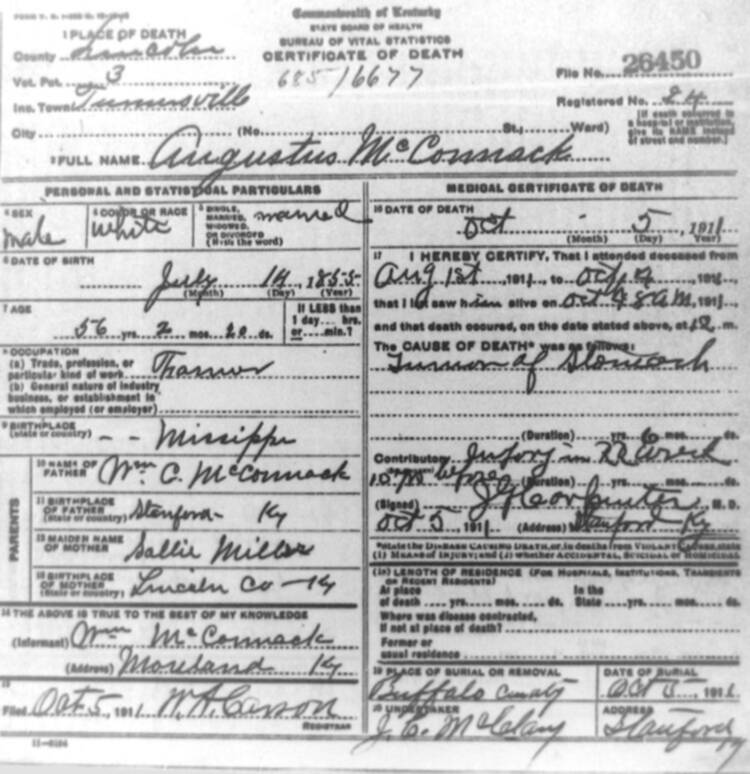 Commonwealth of Kentucky
STATE BOARD OF HEALTH
BUREAU OF VITAL STATISTICS
CERTIFICATE OF DEATH
1 PLACE OF DEATH
County Lincoln
Vot. Pct. 3
File No. 26450
685/6677
Ino. Town Turnersville
Registered No. 24
City (No. St.; Ward)
[If death occurred in a hospital or institution, give its NAME instead of street and number.]
2 FULL NAME Augustus McCormack
PERSONAL AND STATISTICAL PARTICULARS
3 SEX
male
4 COLOR OR RACE
White
5 SINGLE, MARRIED, WIDOWED, OR DIVORCED (Write the word)
married
6 DATE OF BIRTH
July 14, 1855
(Month) (Day) (Year)
7 AGE
56 yrs. 2 mos. 20 ds.
If LESS than 1 day ... hrs. or ... min.?
8 OCCUPATION
(a) Trade, profession, or particular kind of work
(b) General nature of industry business, or establishment in which employed (or employer)
9 BIRTHPLACE (State or country) -- Missippi
PARENTS
10 NAME OF FATHER Wm. C. McCormack
11 BIRTHPLACE OF FATHER (State or country) Stanford Ky
12 MAIDEN NAME OF MOTHER Sallie Miller
13 BIRTHPLACE OF MOTHER (State or country) Lincoln Co - Ky
14 THE ABOVE IS TRUE TO THE BEST OF MY KNOWLEDGE
(Informant) Wm McCormack
(Address) Moreland Ky
15
Filed Oct. 5, 1911 W. A. Carson
REGISTRAR
11-6184
MEDICAL CERTIFICATE OF DEATH
16 DATE OF DEATH
Oct 5, 1911
(Month) (Day) (Year)
17 I HEREBY CERTIFY, That I attended deceased from
Aug 1st 1911, to Oct 4 1911
that I last saw him alive on Oct 4 8 am, 1911
and that death occured, on the date stated above, at 12 m.
The CAUSE OF DEATH* was as follows:
Tumor of Stomach
(Duration) yrs. 6 mos. ds.
Contributory Injory in RR Wreck
10 yrs before (Duration) yrs. mos. ds.
(Signed) J G Carpenter M. D.
Oct 5, 1911 (Address) Stanford Ky
*State the DISEASE CAUSING DEATH, or, in deaths from VIOLENT CAUSES, state (1) MEANS OF INJURY; and (2) whether ACCIDENTAL, SUICIDAL or HOMICIDAL
18 LENGTH OF RESIDENCE (FOR HOSPITALS, INSTITUTIONS, TRANSIENTS OR RECENT RESIDENTS)
At place of death yrs. mos. ds. In the State yrs. mos. ds.
Where was disease contracted, if not at place of death?
Former or usual residence
19 PLACE OF BURIAL OR REMOVAL
Buffalo
DATE OF BURIAL
Oct 5, 1911
20 UNDERTAKER
J. C. McClary
ADDRESS
Stanford Ky